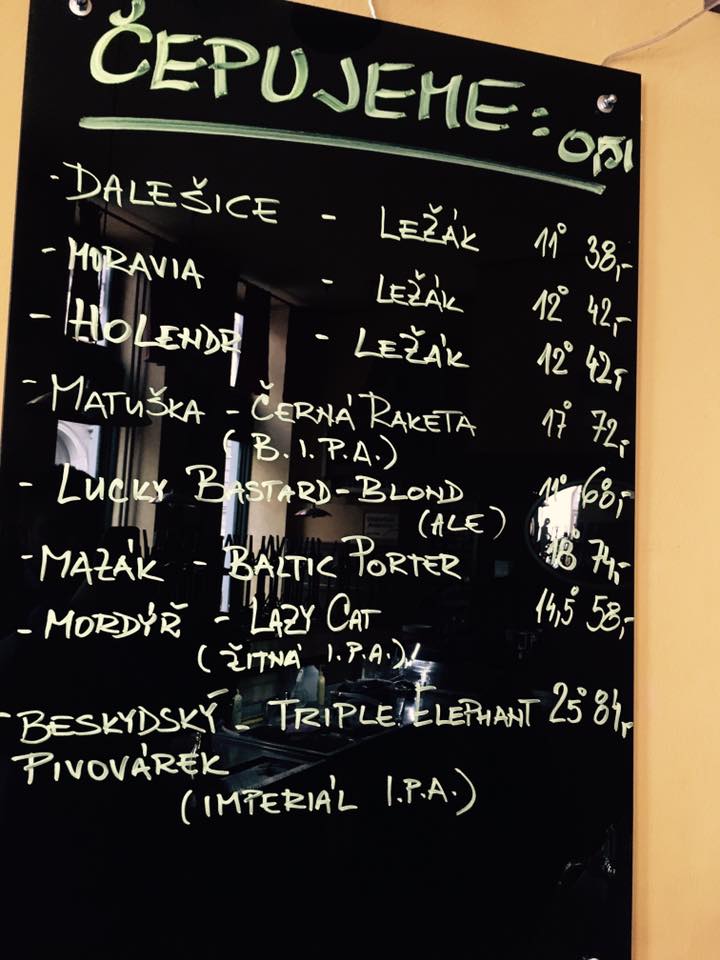 ČEPUJEME: 0,5l
- DALEŠICE - LEŽÁK 11° 38,-
- MORAVIA - LEŽÁK 12° 42,-
- HOLENDR - LEŽÁK 12° 42,-
- MATUŠKA - ČERNÁ RAKETA 17° 72,-
(B.I.P.A.)
- LUCKY BASTARD-BLOND 11° 68,-
(ALE)
- MAZÁK - BALTIC PORTER 18° 74,-
- MORDÝŘ - LAZY CAT 14,5° 58,-
(ŽITNÁ I.P.A.)
- BESKYDSKÝ - TRIPLE ELEPHANT 25° 84,-
PIVOVÁREK
(IMPERIÁL I.P.A.)